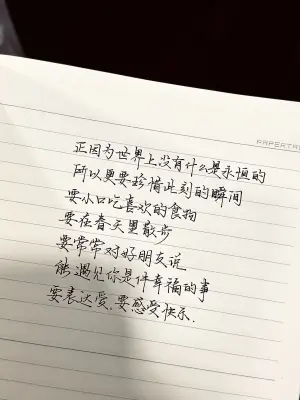 PAPERTA
正因为世界上没有什么是永恒的
所以更要珍惜此刻的瞬间
要小口吃喜欢的食物
要在春天里散步
要常常对好朋友说
能遇见你是件幸福的事
要表达爱,要感受快乐.